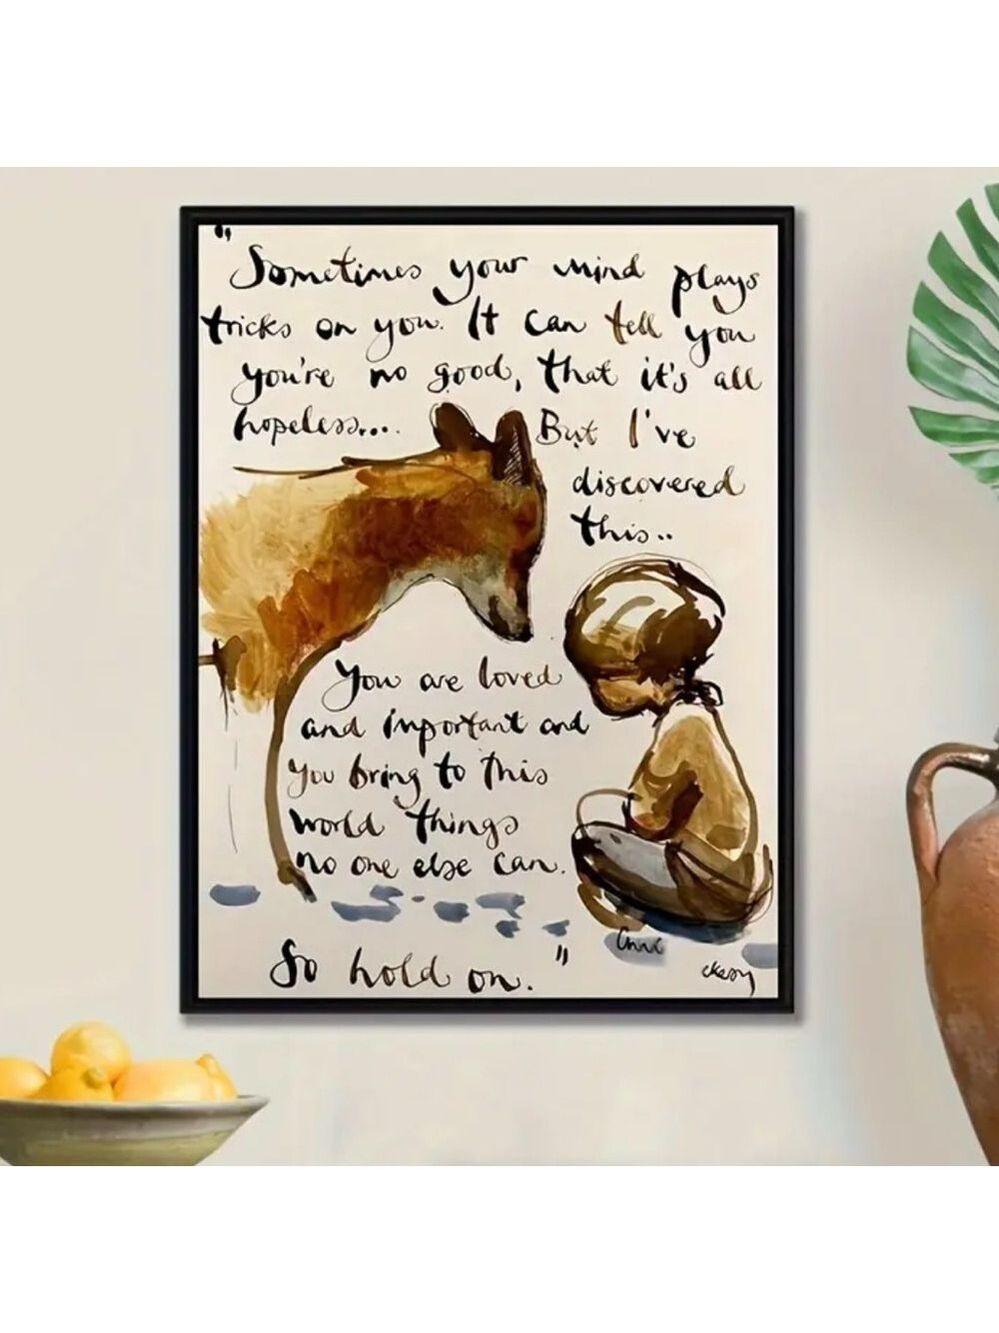 "Sometimes your mind plays
tricks on you. It can tell you
you're no good, that it's all
hopeless.... But I've
discovered
this..
You are loved
and important and
you bring to this
world things
no one else can.
So hold on."